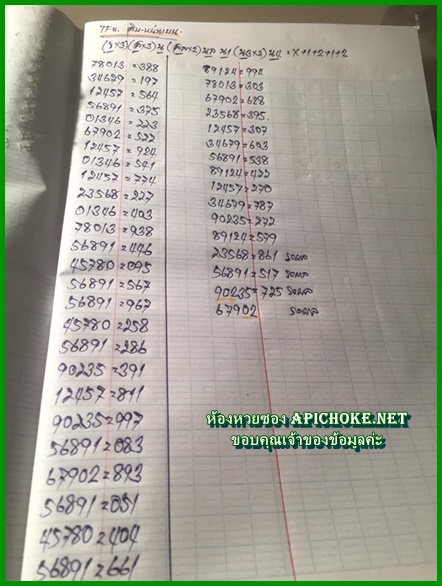 (2×3)
= X+1+2+1+2
78013=388
34679=197
12457=564
56891=375
01346=223
67902=522
12457=924
01346=541
12457=774
23568=227
01346=403
78013=938
56891=446
45780=095
56891=567
56891=967
45780=258
56891=286
90235=391
12457=811
90235=997
56891=083
67902=893
56891=051
45780=404
56891=661
89124=994
78013=303
67902=628
23568=395
12457=307
34679=693
56891=538
89124=422
12457=270
34679=787
90235=272
89124=579
23568=861
56891=517
90235=725
67902
ห้องหวยซอง APICHOKE.NET
ขอบคุณเจ้าของข้อมูลค่ะ